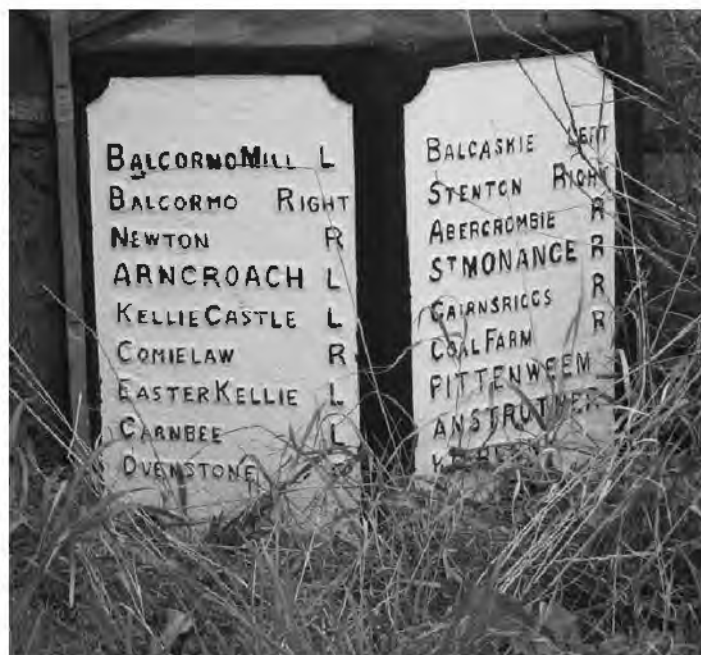 BALCORMO MILL L
BALCORMO RIGHT
NEWTON R
ARNCROACH L
KELLIE CASTLE L
COMIELAW R
EASTER KELLIE L
CARNBEE L
OVENSTONE
BALCASKIE LEFT
STENTON RIGHT
ABERCROMBIE R
ST MONANCE R
CAIRNSRIGGS R
COAL FARM R
PITTENWEEM
ANSTRUTHER